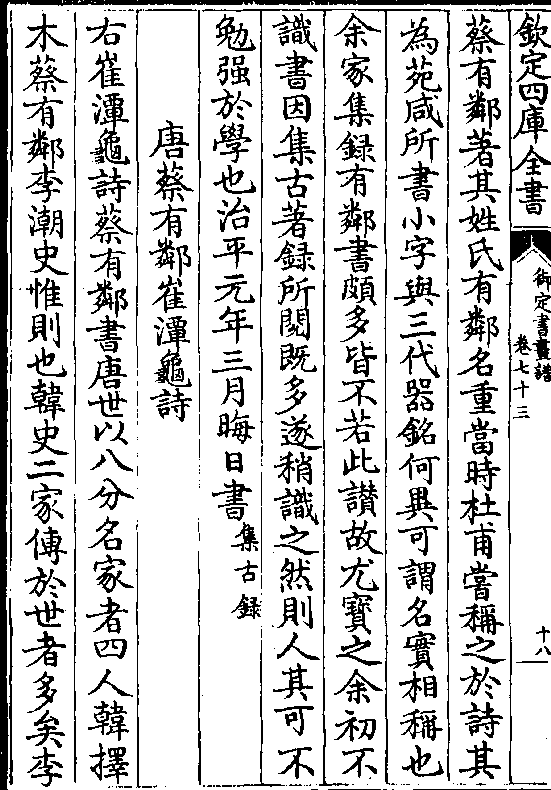 欽定四庫全書
御定書畫譜
卷七十三
十八
蔡有鄰著其姓氏有鄰名重當時杜甫嘗稱之於詩其
為苑咸所書小字與三代器銘何異可謂名實相稱也
余家集録有鄰書頗多皆不若此讃故尤寳之余初不
識書因集古著録所閱既多遂稍識之然則人其可不
勉强於學也治平元年三月晦日書集古録
唐蔡有鄰崔潭龜詩
右崔潭龜詩蔡有鄰書唐世以八分名家者四人韓擇
木蔡有鄰李潮史惟則也韓史二家傳於世者多矣李